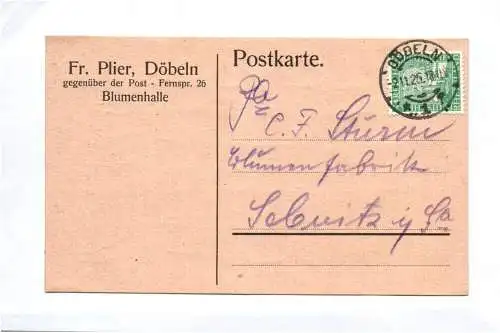 Fr. Plier, Döbeln
gegenüber der Post - Fernspr. 26
Blumenhalle
Postkarte.
DÖBELN
Fa
C. F. Sturm
Blumenfabrik
Sebnitz i/ Sa